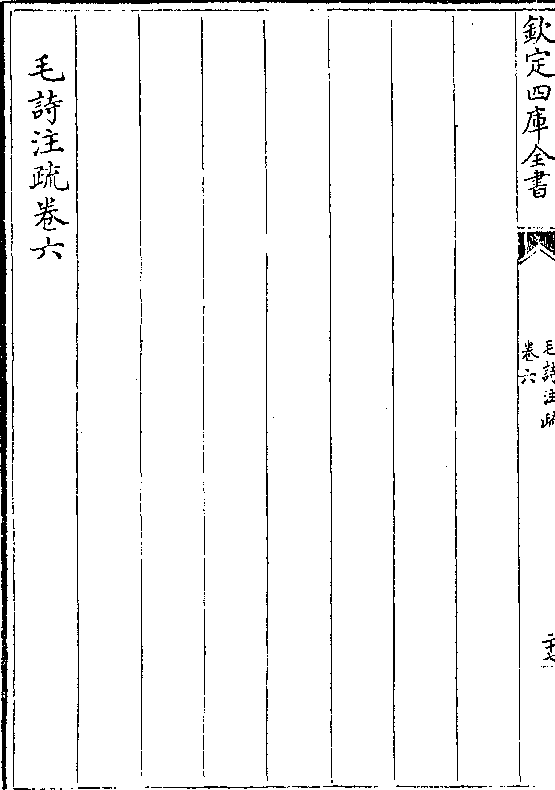 欽定四庫全書
毛詩注疏
卷六
毛詩注疏卷六